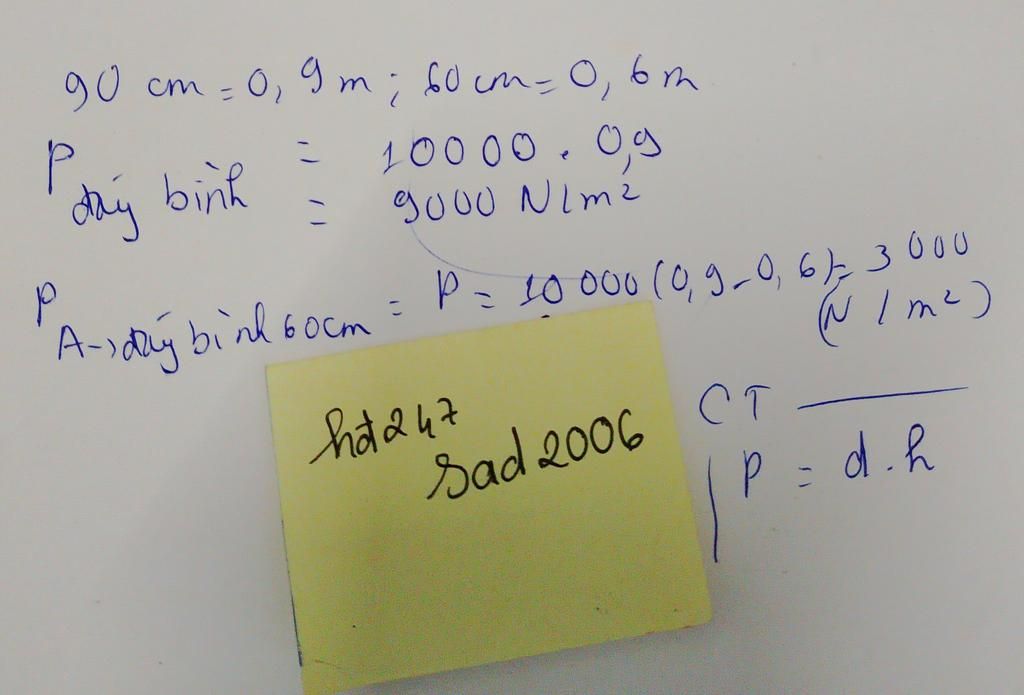 90 cm = 0,9 m ; 60 cm = 0,6 m
P đáy bình = 10000 . 0,9
= 9000 N/m²
P A->đáy bình 60cm = P = 10 000 (0,9 - 0,6) = 3 000 (N/m²)
hđ247
sad2006
CT
P = d.h